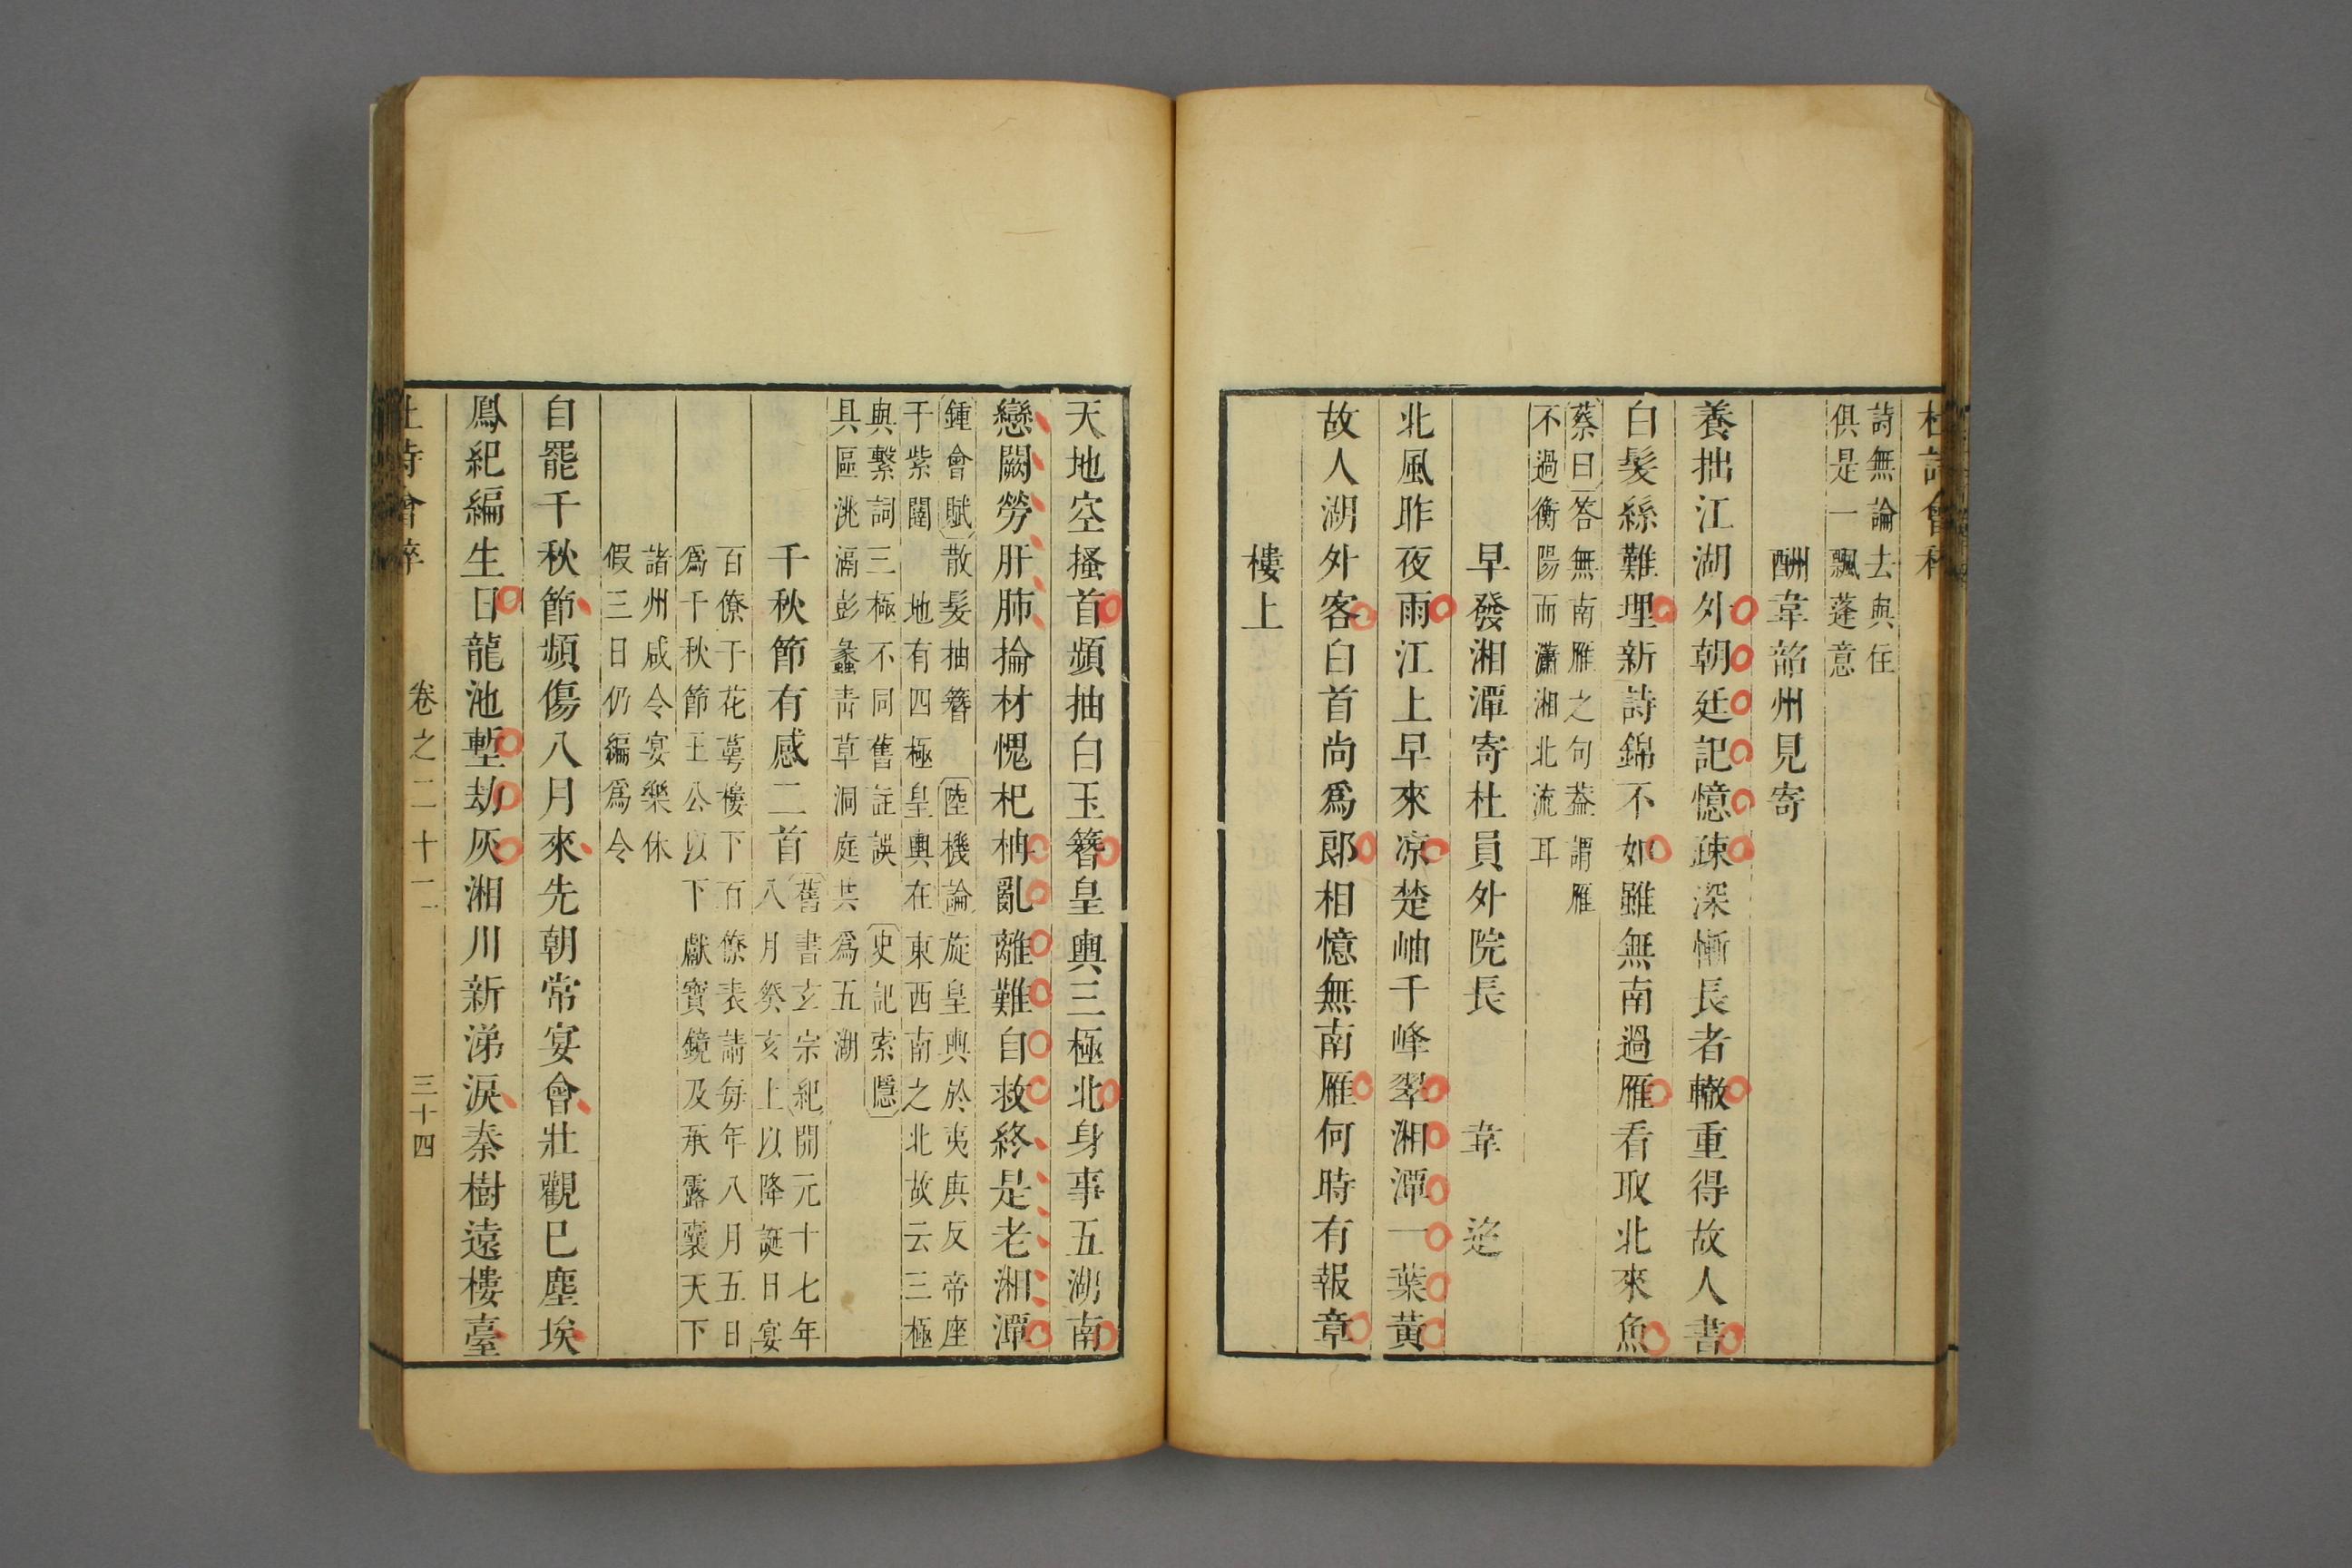 杜詩會稡
詩無論去與住
俱是一飄蓬意
酬韋韶州見寄
養拙江湖外朝廷記憶疎深慚長者轍重得故人書
白髮絲難理新詩錦不如雖無南過雁看取北來魚
蔡曰答無南雁之句葢謂雁
不過衡陽而瀟湘北流耳
早發湘潭寄杜員外院長 韋迢
北風昨夜雨江上早來凉楚岫千峰翠湘潭一葉黃
故人湖外客白首尚爲郎相憶無南雁何時有報章
樓上
天地空搔首頻抽白玉簪皇輿三極北身事五湖南
戀闕勞肝肺掄材愧杞柟亂離難自救終是老湘潭
鍾會賦散髮抽簪 陸機論旋皇輿於夷庚反帝座
于紫闥 地有四極皇輿在東西南之北故云三極
與繫詞三極不同舊註誤 史記索隱
具區洮滆彭蠡靑草洞庭共爲五湖
千秋節有感二首
舊書玄宗紀開元十七年
八月癸亥上以降誕日宴
百僚于花萼樓下百僚表請每年八月五日
爲千秋節王公以下獻寶鏡及承露囊天下
諸州咸令宴樂休
假三日仍編爲令
自罷千秋節頻傷八月來先朝常宴會壯觀巳塵埃
鳳紀編生日龍池塹劫灰湘川新涕淚秦樹遠樓臺
杜詩會稡 卷之二十二 三十四